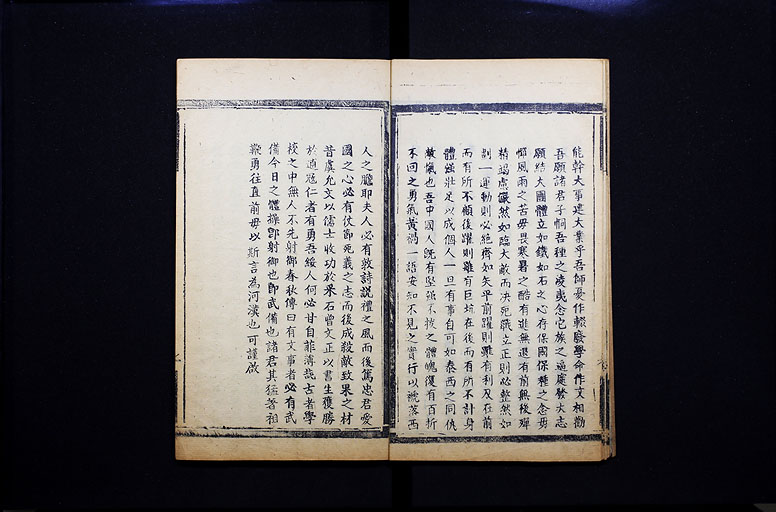 能幹大事建大業乎吾師憂作輟廢學命作文相勸
吾願諸君子恫吾種之凌夷念它族之逼處發大志
願結大團體立如鐵如石之心存保國保種之念毋
憚風雨之苦毋畏寒暑之酷有進無退有前無後殫
精竭慮儼然如臨大敵而决死戰立正則必整然如
劃一運動則必絶齊如矢平前躍則雖有利刃在前
而有所不顧後躍則雖有巨坑在後而有所不計身
體強壯足以成個人一旦有事自可如泰西之同仇
敵愾也吾中國人既有堅強不拔之體魄復有百折
不回之勇氣黃禍一語安知不見之實行以褫落西
人之膽耶夫人必有敦詩説禮之風而後篤忠君愛
國之心必有仗節死義之志而後成殺敵致果之材
昔虞允文以儒士收功於采石曾文正以書生獲勝
於逆冦仁者有勇吾綏人何必甘自菲薄哉古者學
校之中無人不先射御春秋傳曰有文事者必有武
僃今日之體操卽射御也卽武備也諸君其猛著祖
鞭勇往直前毋以斯言為河漢也可謹啟